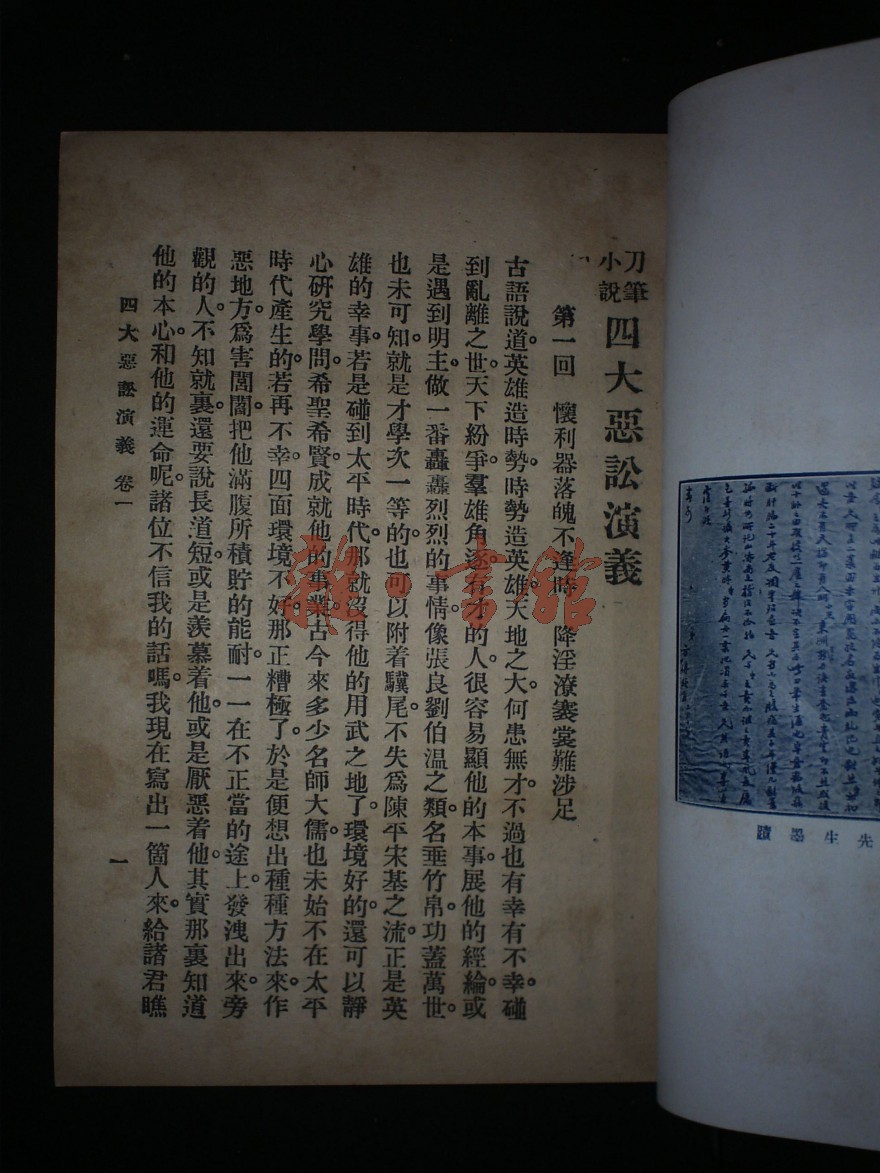 刀筆
小說
四大惡訟演義
第一回　懷利器落魄不逢時　降淫潦褰裳難涉足
古語說道。英雄造時勢。時勢造英雄。天地之大。何患無才。不過也有幸有不幸。碰
到亂離之世。天下紛爭。羣雄角逐。有才的人。很容易顯他的本事。展他的經綸。或
是遇到明主。做一番轟轟烈烈的事情。像張良劉伯温之類。名垂竹帛。功蓋萬世。
也未可知。就是才學次一等的。也可以附着驥尾。不失爲陳平宋基之流。正是英
雄的幸事。若是碰到太平時代。那就沒得他的用武之地了。環境好的。還可以靜
心研究學問。希聖希賢。成就他的事業。古今來多少名師大儒。也未始不在太平
時代產生的。若再不幸。四面環境不好。那正糟極了。於是便想出種種方法來。作
惡地方。爲害閭閻。把他滿腹所積貯的能耐。一一在不正當的途上。發洩出來。旁
觀的人。不知就裏。還要說長道短。或是羨慕着他。或是厭惡着他。其實那裏知道
他的本心。和他的運命呢。諸位不信我的話嗎。我現在寫出一箇人來。給諸君瞧
四大惡訟演義　卷一
一
先生墨蹟
雜·書館